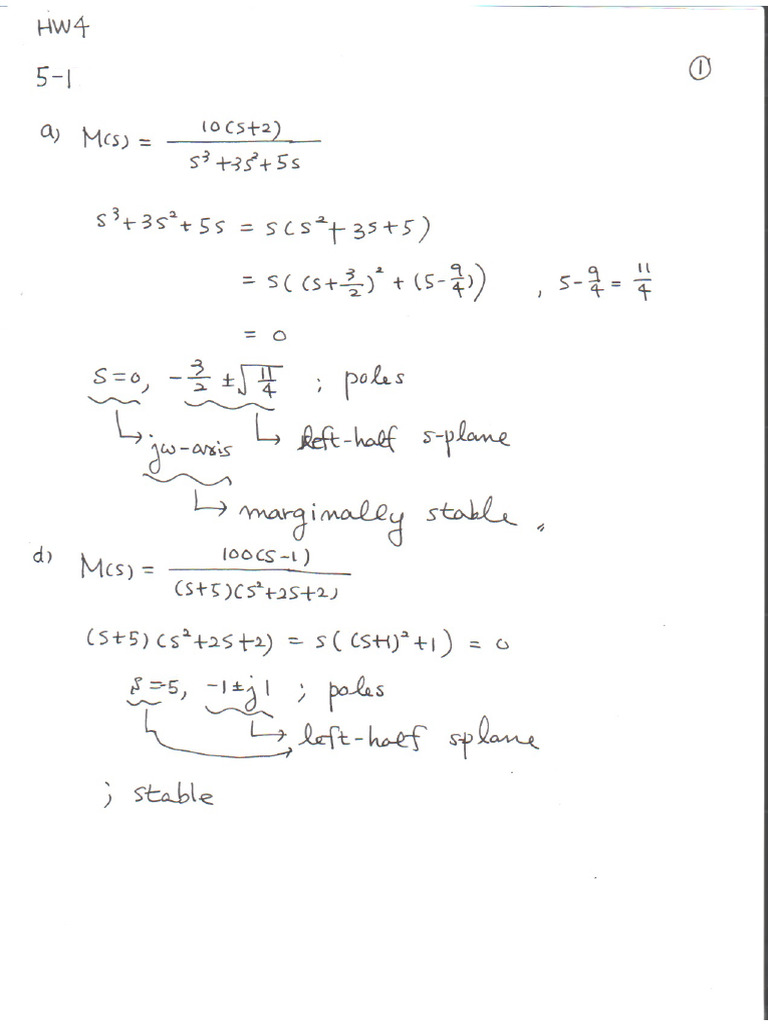 HW4
5-1
①
a) M(s) = 10(s+2) / s³+3s²+5s
s³+3s²+5s = s(s²+3s+5)
= s((s+3/2)² + (5-9/4)) , 5-9/4 = 11/4
= 0
s=0, -3/2 ±√11/4 ; poles
jw-axis left-half s-plane
marginally stable 〃
d) M(s) = 100(s-1) / (s+5)(s²+2s+2)
(s+5)(s²+2s+2) = s((s+1)²+1) = 0
s=-5, -1±j1 ; poles
left-half splane
; stable